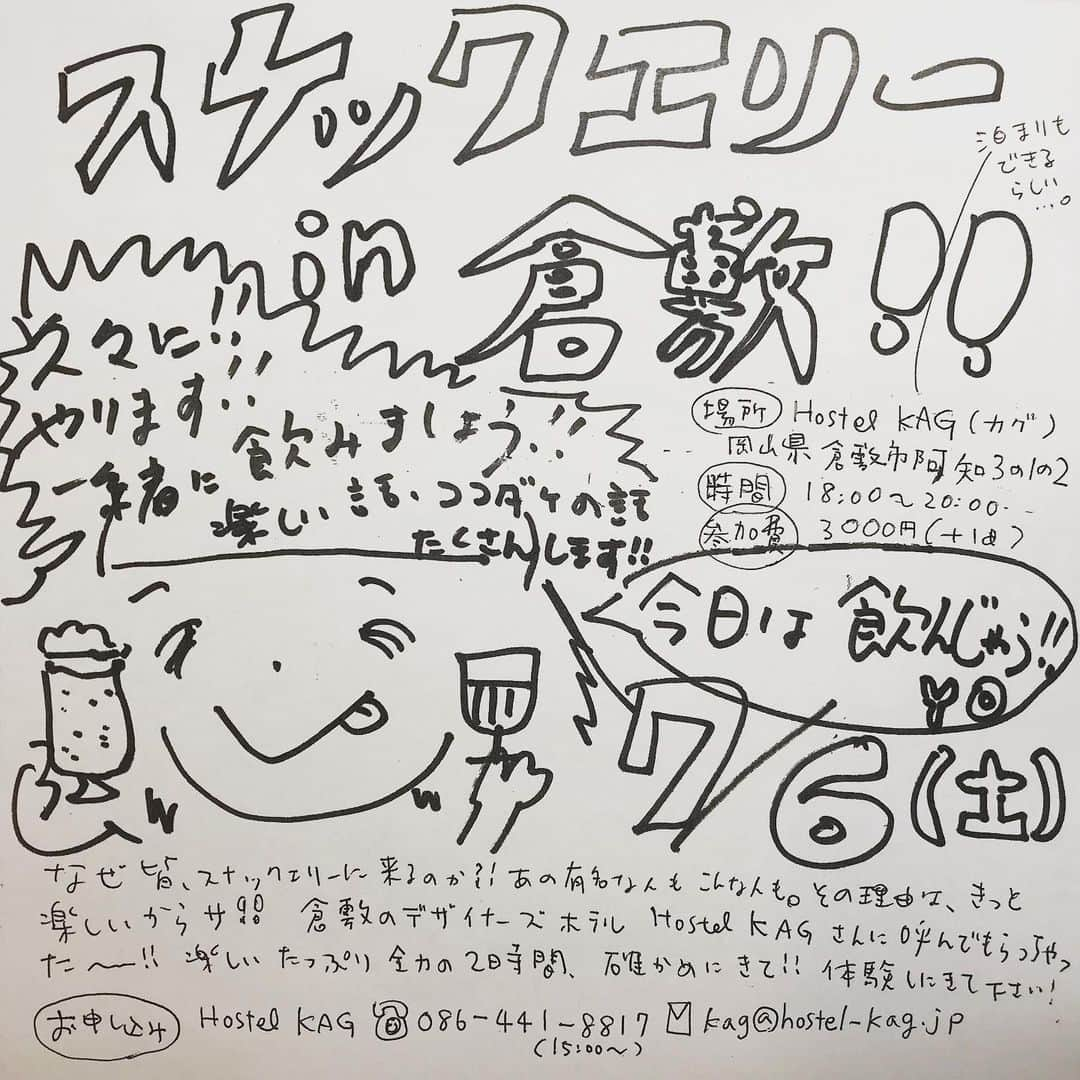 スナックエリー
in 倉敷!!
泊まりも
できる
らしい...。
久々に!!
やります!!
一緒に飲みましょう!!
楽しい話、ココダケの話
たくさんします!!
場所 Hostel KAG (カグ)
岡山県倉敷市阿知3の1の2
時間 18:00〜20:00...
参加費 3000円(+1d)
今日は飲んじゃう!!
YO
7/6(土)
なぜ皆、スナックエリーに来るのか?! あの有名なんもこんなんも。その理由は、きっと
楽しいからサ!! 倉敷のデザイナーズホテル Hostel KAGさんに呼んでもらっちゃっ
た〜!! 楽しいたっぷり全力の2時間、確かめにきて!! 体験しにきて下さい!
お申し込み Hostel KAG ☎086-441-8817 ✉kag@hostel-kag.jp
(15:00〜)